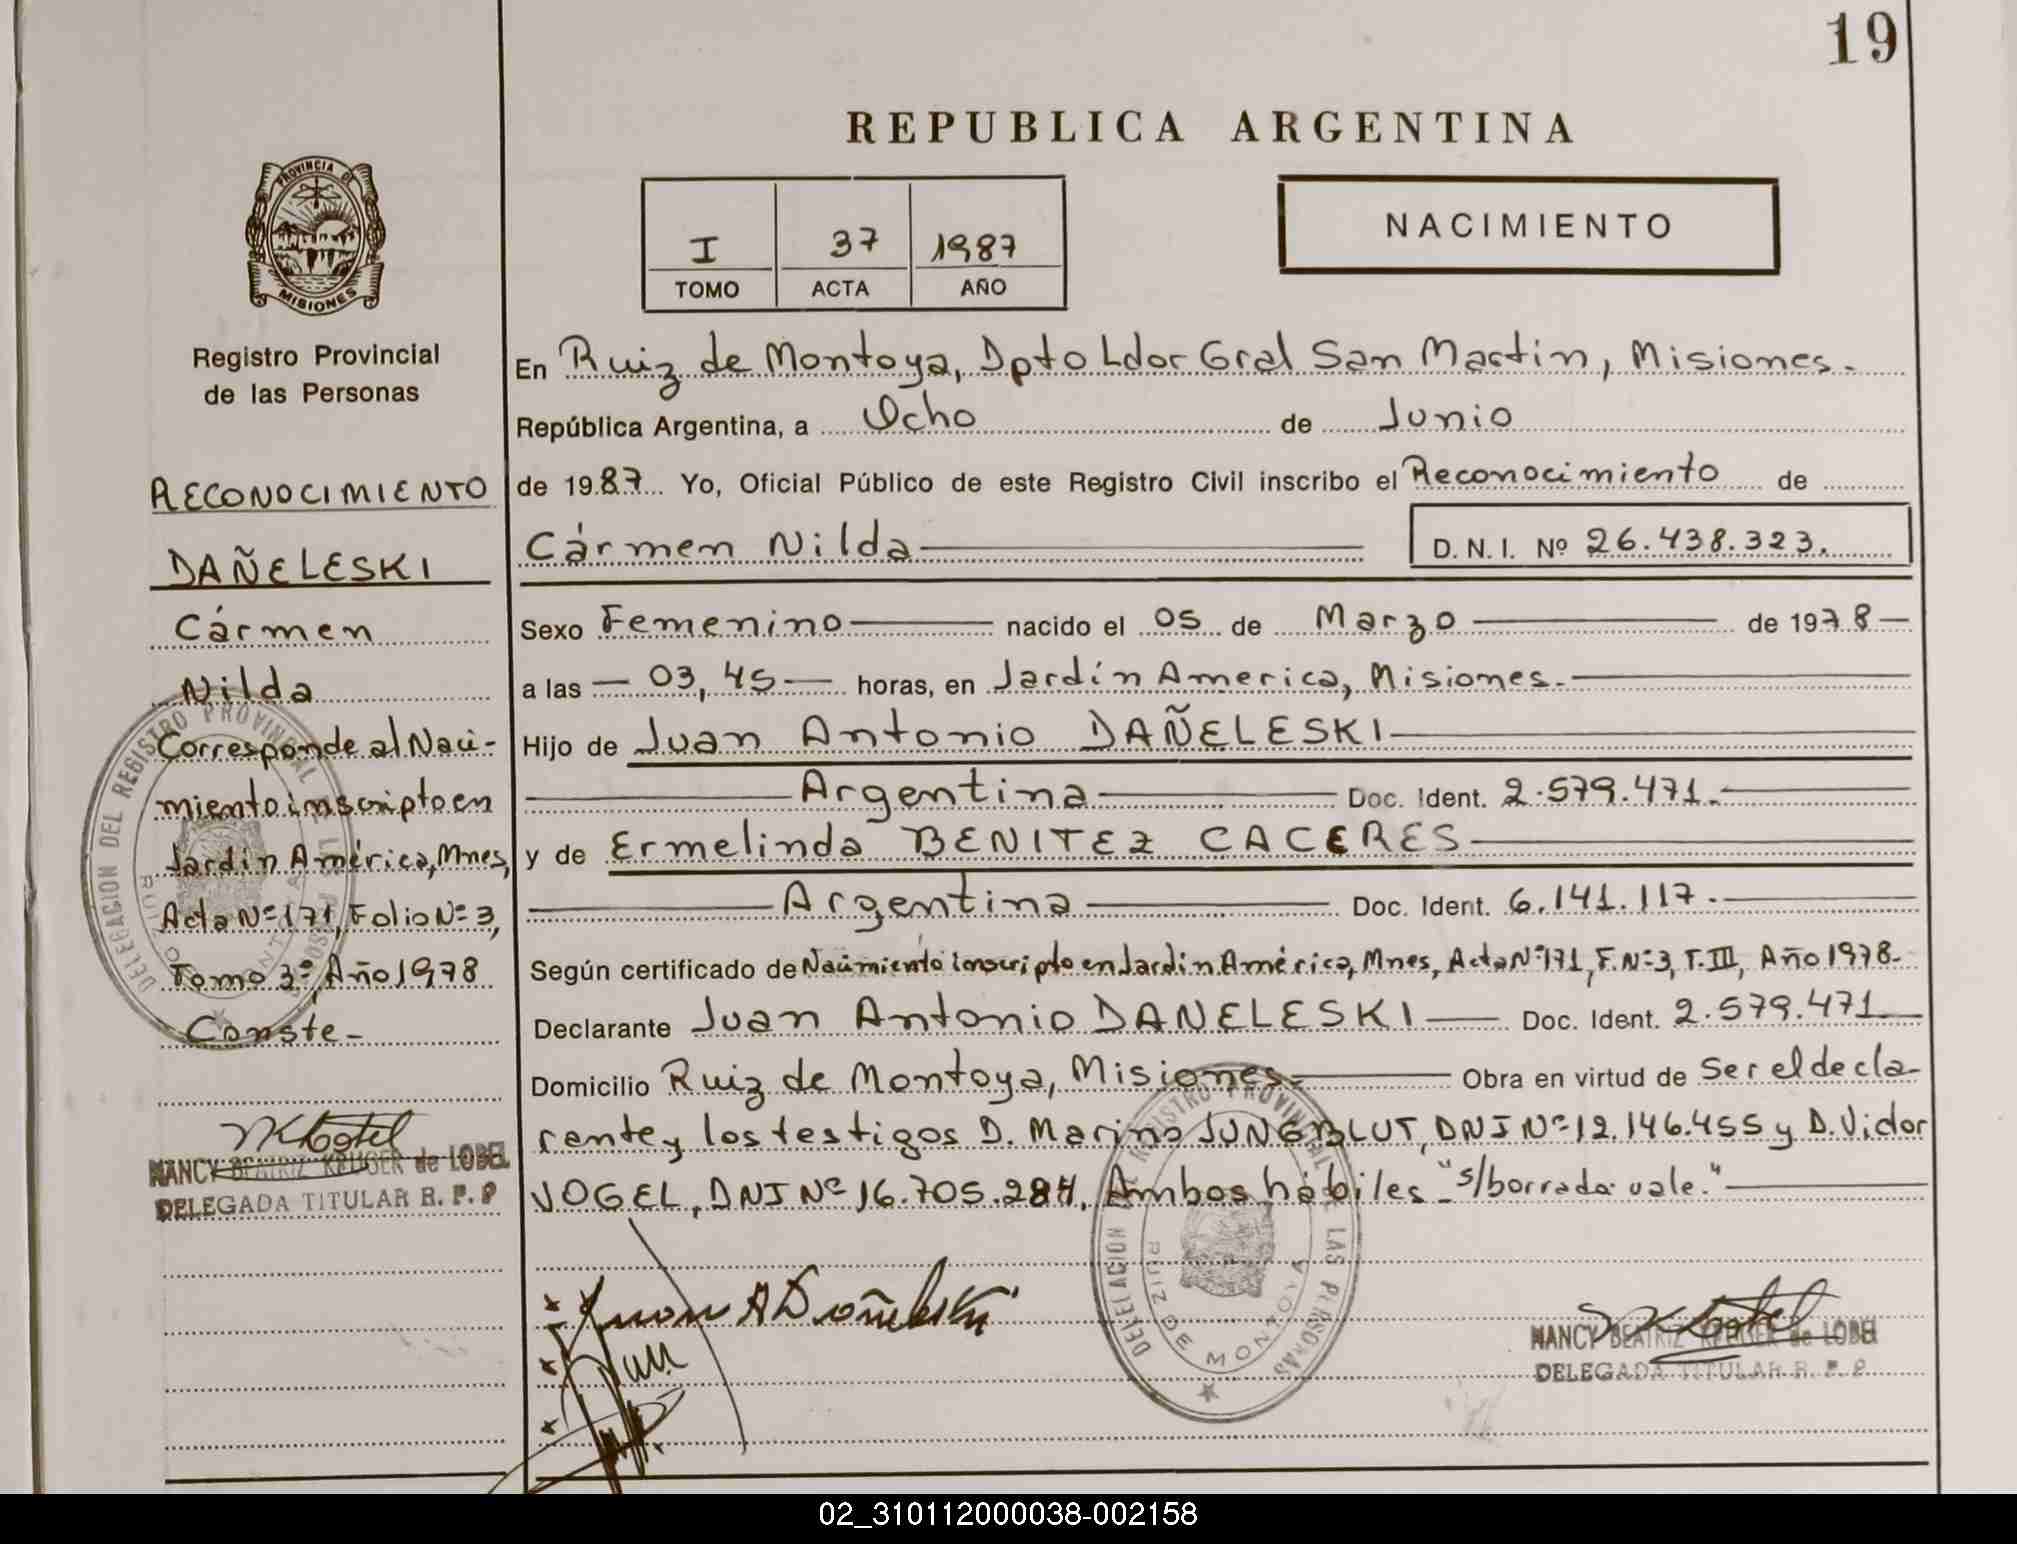 19
REPUBLICA ARGENTINA
PROVINCIA DE
MISIONES
I 37 1987
TOMO ACTA AÑO
NACIMIENTO
Registro Provincial
de las Personas
RECONOCIMIENTO
DAÑELESKI
Cármen
Nilda
Corresponde al Naci-
miento inscripto en
Jardín América, Mnes,
Acta Nº 171, Folio Nº 3,
Tomo 3º, Año 1978
Conste-
NANCY BEATRIZ KRUGER de LOBEL
DELEGADA TITULAR R. P. P
DELEGACION DEL REGISTRO PROVINCIAL DE LAS PERSONAS
RUIZ DE MONTOYA
En Ruiz de Montoya, Dpto Ldor Gral San Martin, Misiones.
República Argentina, a Ocho de Junio
de 1987 Yo, Oficial Público de este Registro Civil inscribo el Reconocimiento de
Cármen Nilda D. N. I. Nº 26.438.323.
Sexo Femenino nacido el 05 de Marzo de 1978
a las 03,45 horas, en Jardín America, Misiones.
Hijo de Juan Antonio DAÑELESKI
Argentina Doc. Ident. 2.579.471.
y de Ermelinda BENITEZ CACERES
Argentina Doc. Ident. 6.141.117.
Según certificado de Nacimiento inscripto en Jardín América, Mnes, Acta Nº 171, F. Nº 3, T. III, Año 1978.
Declarante Juan Antonio DANELESKI Doc. Ident. 2.579.471
Domicilio Ruiz de Montoya, Misiones Obra en virtud de Ser el decla-
rante y los testigos D. Marino JUNGBLUT, DNI Nº 12.146.455 y D. Victor
VOGEL, DNI Nº 16.705.284, Ambos hábiles "s/borrado: vale."
Juan A Dañeleski
DELEGACION DEL REGISTRO PROVINCIAL DE LAS PERSONAS
RUIZ DE MONTOYA
NANCY BEATRIZ KRUGER de LOBEL
DELEGADA TITULAR R. P. P.
02_310112000038-002158